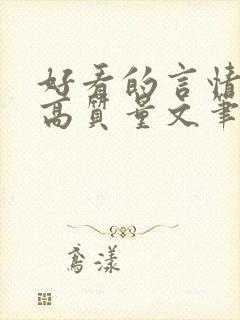 好看的言情
高质量文笔
鸢漾